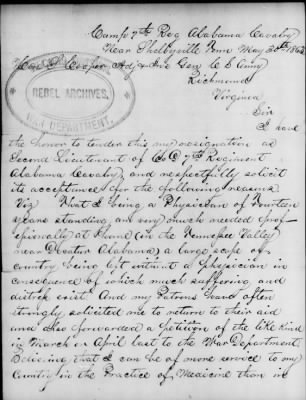 Camp 7th Reg Alabama Cavalry
Near Shelbyville Tenn May 30th 1863
Gen S Cooper Adj & Ins Gen C S Army
Richmond
Virginia
REBEL ARCHIVES,
WAR DEPARTMENT.
Sir
I have
the honor to tender this my resignation as
Second Lieutenant of Co D 7th Regiment
Alabama Cavalry, and respectfully solicit
its acceptance for the following reasons
Viz That I being a Physician of
years standing am very much needed prof-
essionally at home (in the Tennessee Valley
near Decatur Alabama) a large scope of
country being left without a physician in
consequence of which much suffering and
distress exist. And my Patrons have often
strongly solicited me to return to their aid
and also forwarded a petition of the like kind
in March or April last to the War Department.
Believing that I can be of more service to my
Country in the Practice of Medicine than in